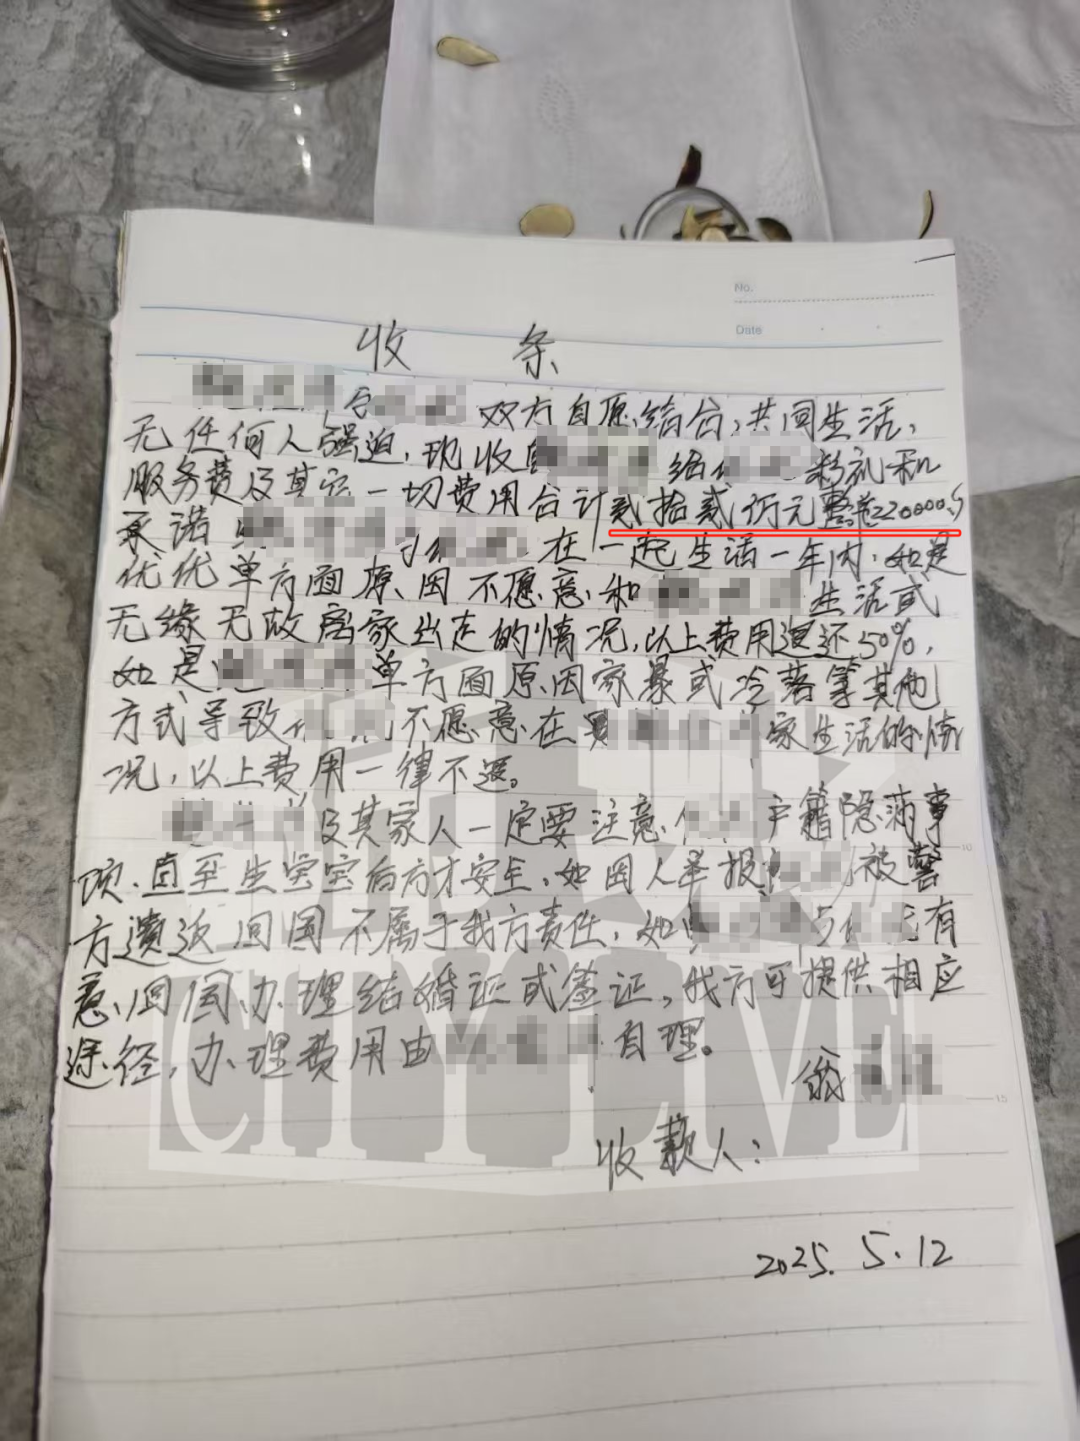 No.
Date
收 条
双方自愿结合,共同生活,
无任何人强迫,现收 给 彩礼和
服务费及其它一切费用合计贰拾贰仟元整 220000
承诺 在一起生活一年内,如是
优优单方面原因不愿意和 生活或
无缘无故离家出走的情况,以上费用退还50%,
如是 单方面原因家暴或冷落等其他
方式导致 不愿意在 家生活的情
况,以上费用一律不退。
及其家人一定要注意 户籍隐满事
项,直至生宝宝后方才安全,如因人举报 被警
方遣返回国不属于我方责任,如 有
意回国办理结婚证或签证,我方可提供相应
途径,办理费用由 自理。
翁
收款人:
2025.5.12
CITYLIVE